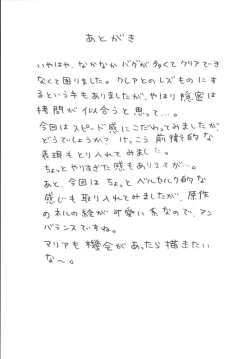 あとがき
いやはや、なかなかバグが多くてクリアでき
なくて困りました。クレアとのレズものにす
るという手もありましたが、やはり隠密は
拷問が似合うと思って…。
今回はスピード感にこだわってみましたが、
どうでしょうか？けっこう前衛的な
表現もとり入れてみました。
ちょっとやりすぎた感もありますが…。
あと、今回はちょっとベルセルク的な
感じも取り入れてみましたが、原作
のネルの絵が可愛い系なので、アン
バランスですね。
マリアも機会があったら描きたい
な〜。